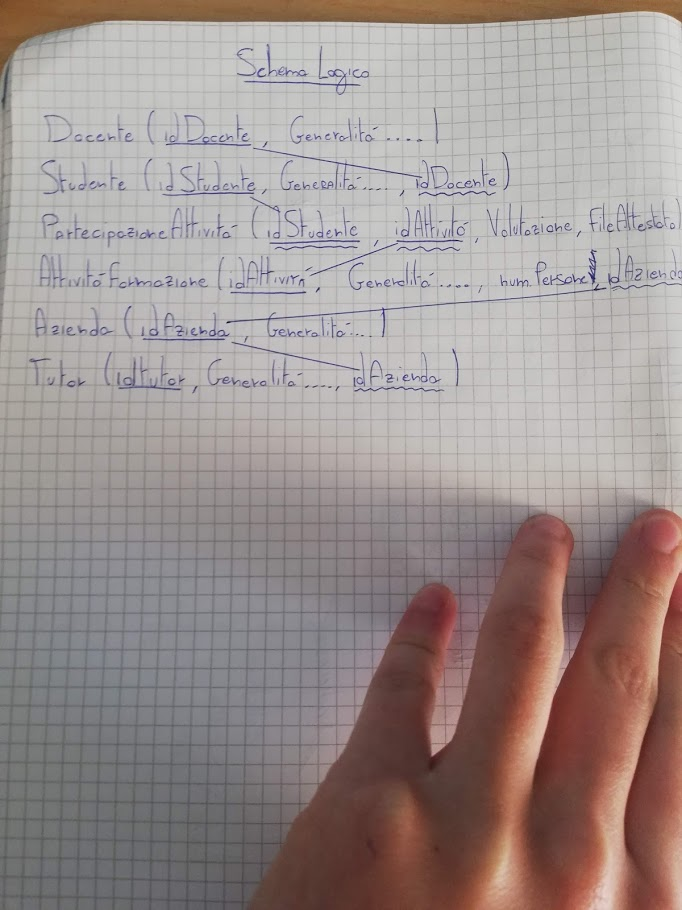 Schema Logico
Docente (idDocente, Generalità ....)
Studente (idStudente, Generalità...., idDocente)
PartecipazioneAttività (idStudente, idAttività, Valutazione, fileAttestato)
AttivitàFormazione (idAttività, Generalità...., num.Persone, idAzienda
Azienda (idAzienda, Generalità....)
Tutor (idTutor, Generalità...., idAzienda)